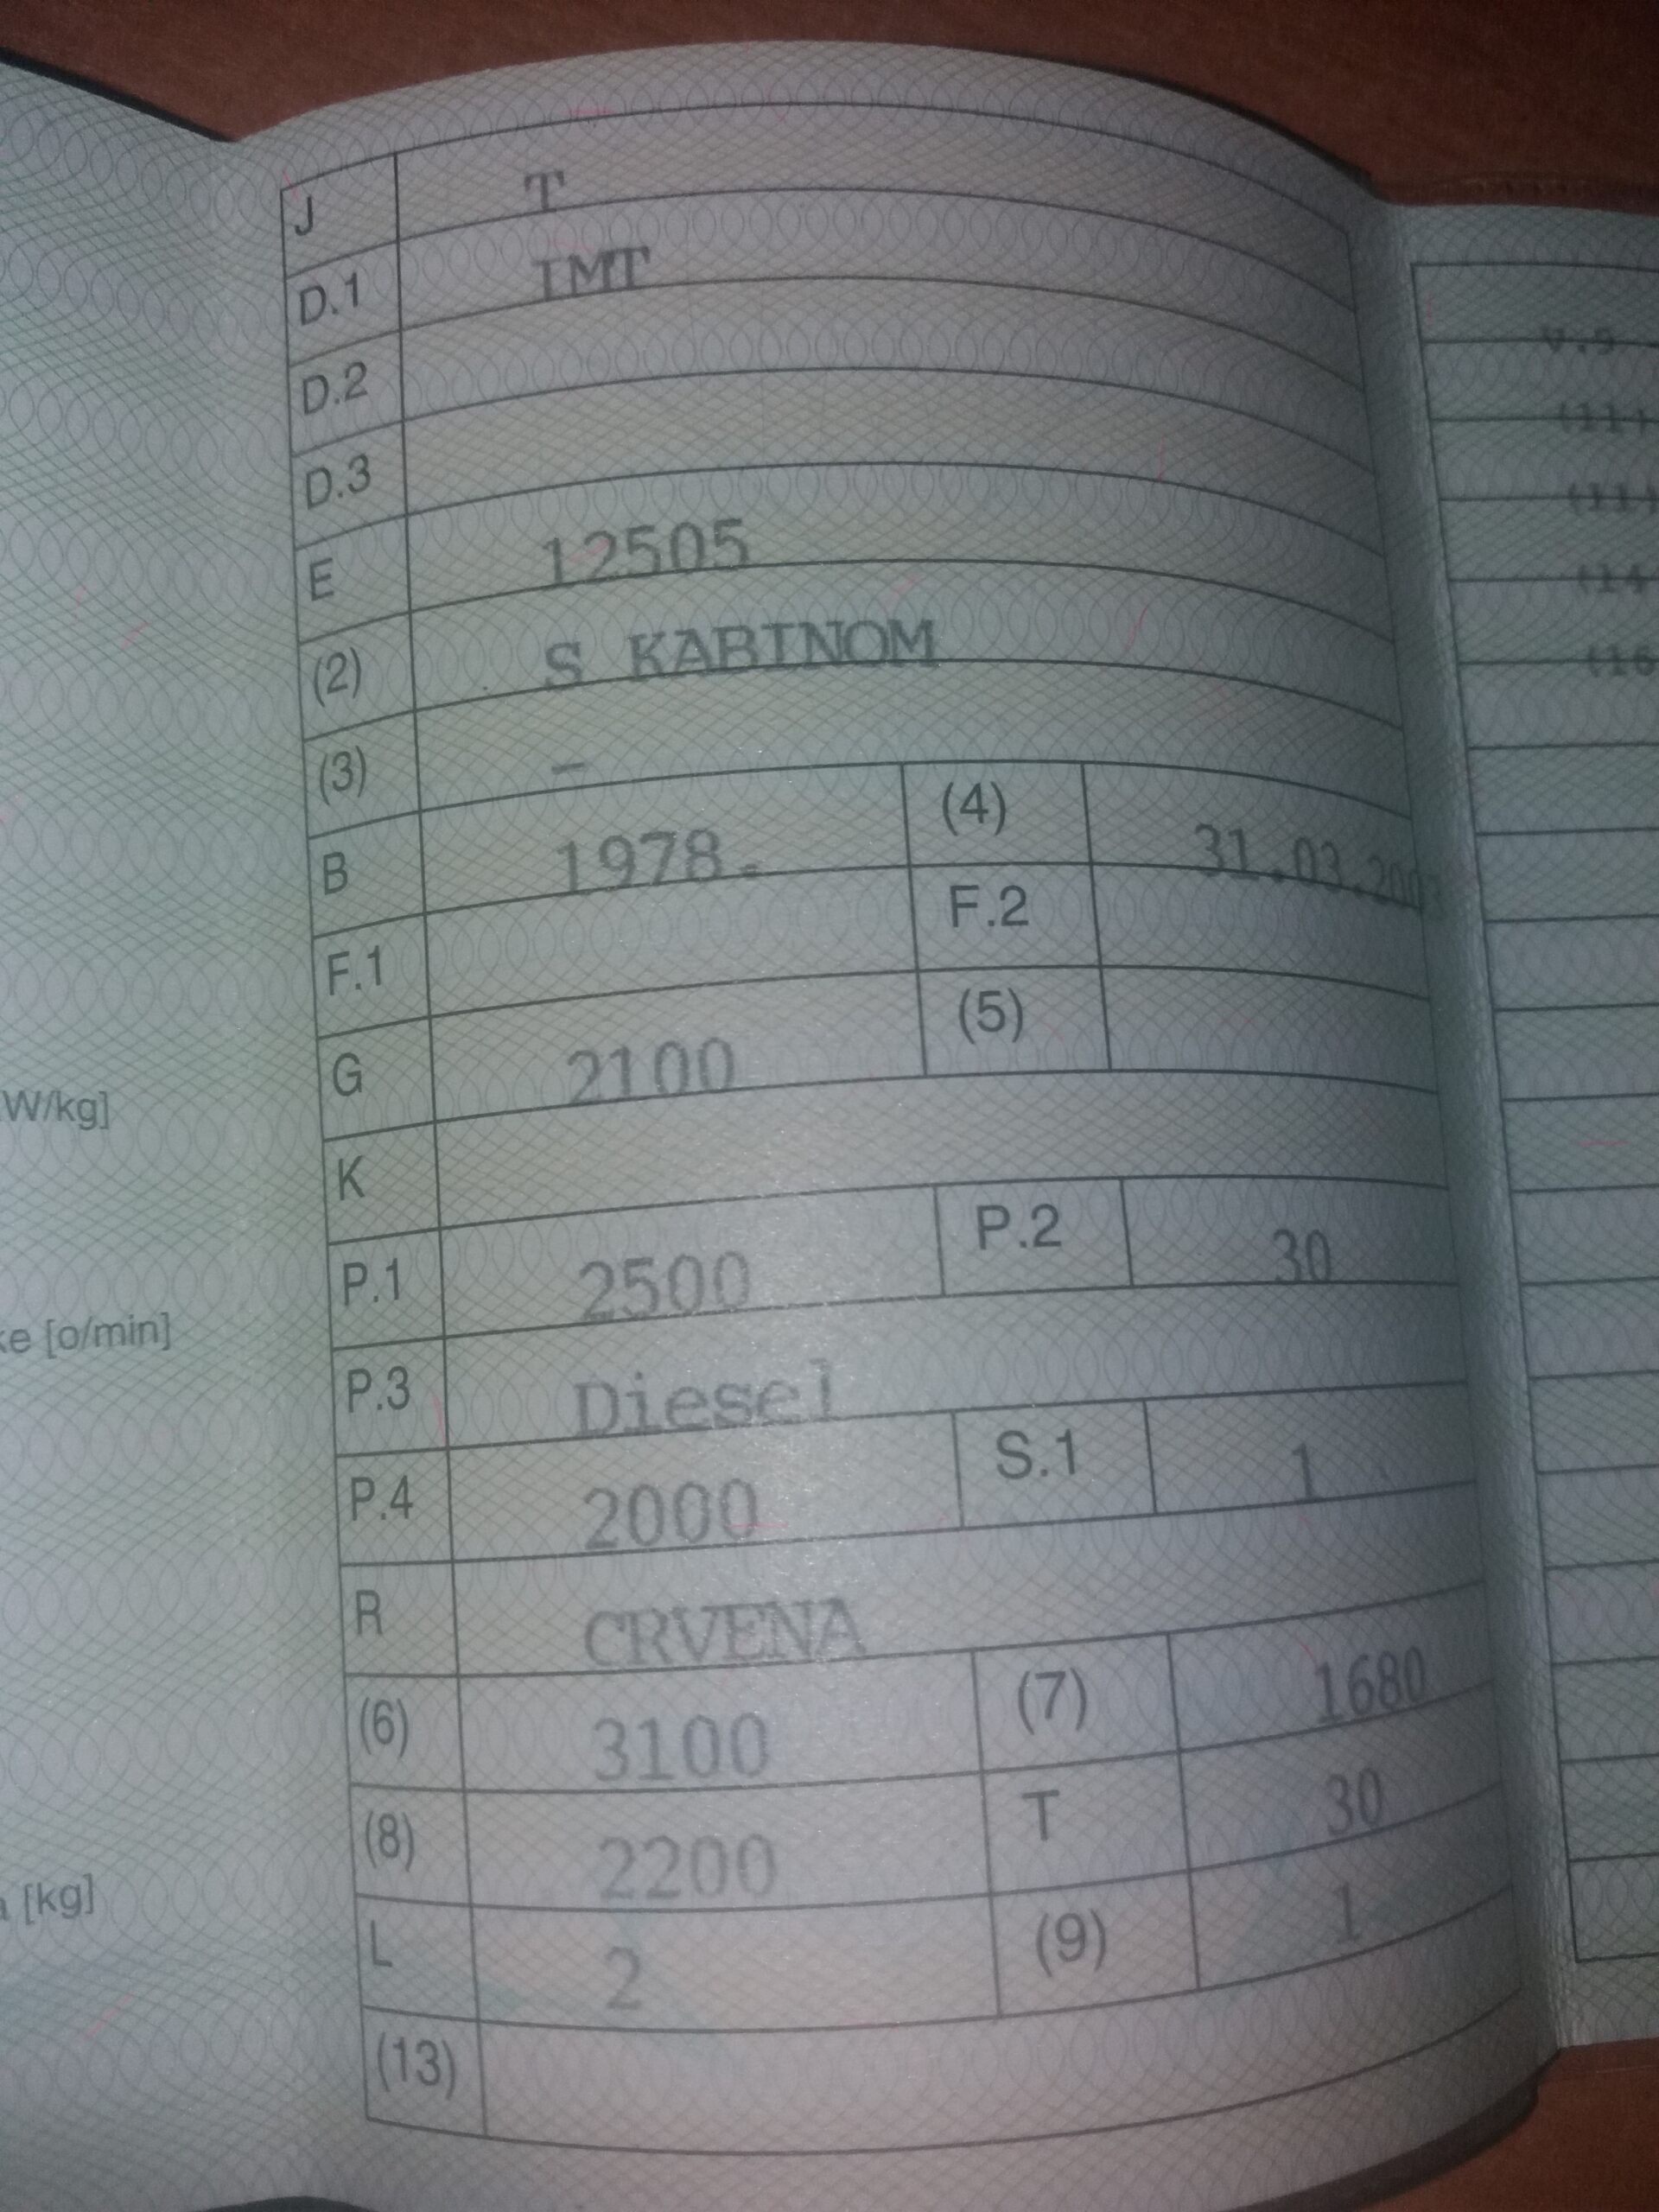 J T
D.1 IMT
D.2
D.3
E 12505
(2) S KABINOM
(3) –
B 1978. (4) 31.03.200
F.1 F.2
G 2100 (5)
K
P.1 2500 P.2 30
P.3 Diesel
P.4 2000 S.1 1
R CRVENA
(6) 3100 (7) 1680
(8) 2200 T 30
L 2 (9) 1
(13)
W/kg]
ke [o/min]
a [kg]
V.9
(11)
(11)
(14
(16